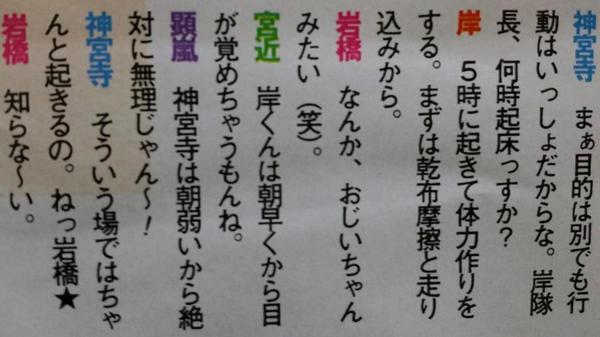 神宮寺　まぁ目的は別でも行
動はいっしょだからな。岸隊
長、何時起床っすか？
岸　５時に起きて体力作りを
する。まずは乾布摩擦と走り
込みから。
岩橋　なんか、おじいちゃん
みたい（笑）。
宮近　岸くんは朝早くから目
が覚めちゃうもんね。
顕嵐　神宮寺は朝弱いから絶
対に無理じゃん〜！
神宮寺　そういう場ではちゃ
んと起きるの。ねっ岩橋★
岩橋　知らな〜い。